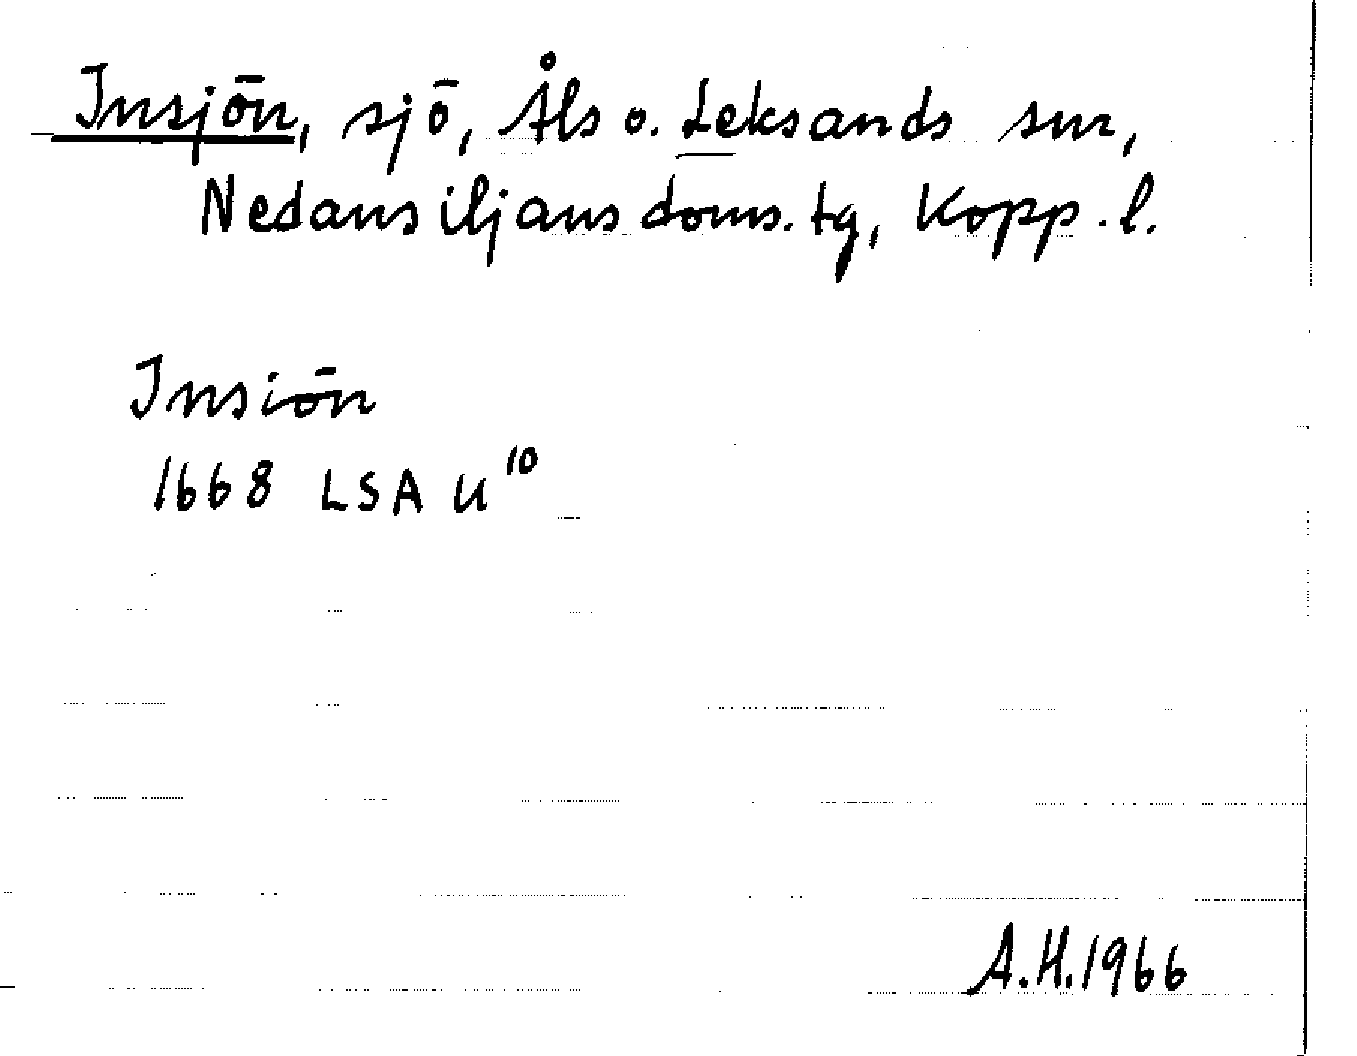 Insjön, sjö, Åls o. Leksands snr,
Nedansiljans doms. tg, Kopp. l.
Insiön
1668 LSA U¹⁰
A.H. 1966